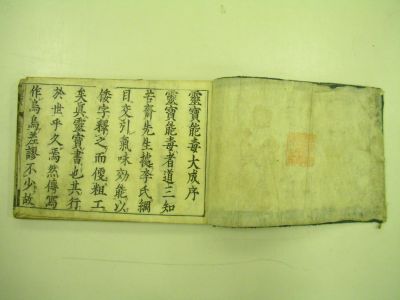 靈寶能毒大成序
靈寶能毒者道三知
苦齋先生據李氏綱
目交引氣味効能以
倭字釋之而便粗工
矣眞靈寶書也其行
於世乎久焉然傳寫
作烏烏差謬不少故